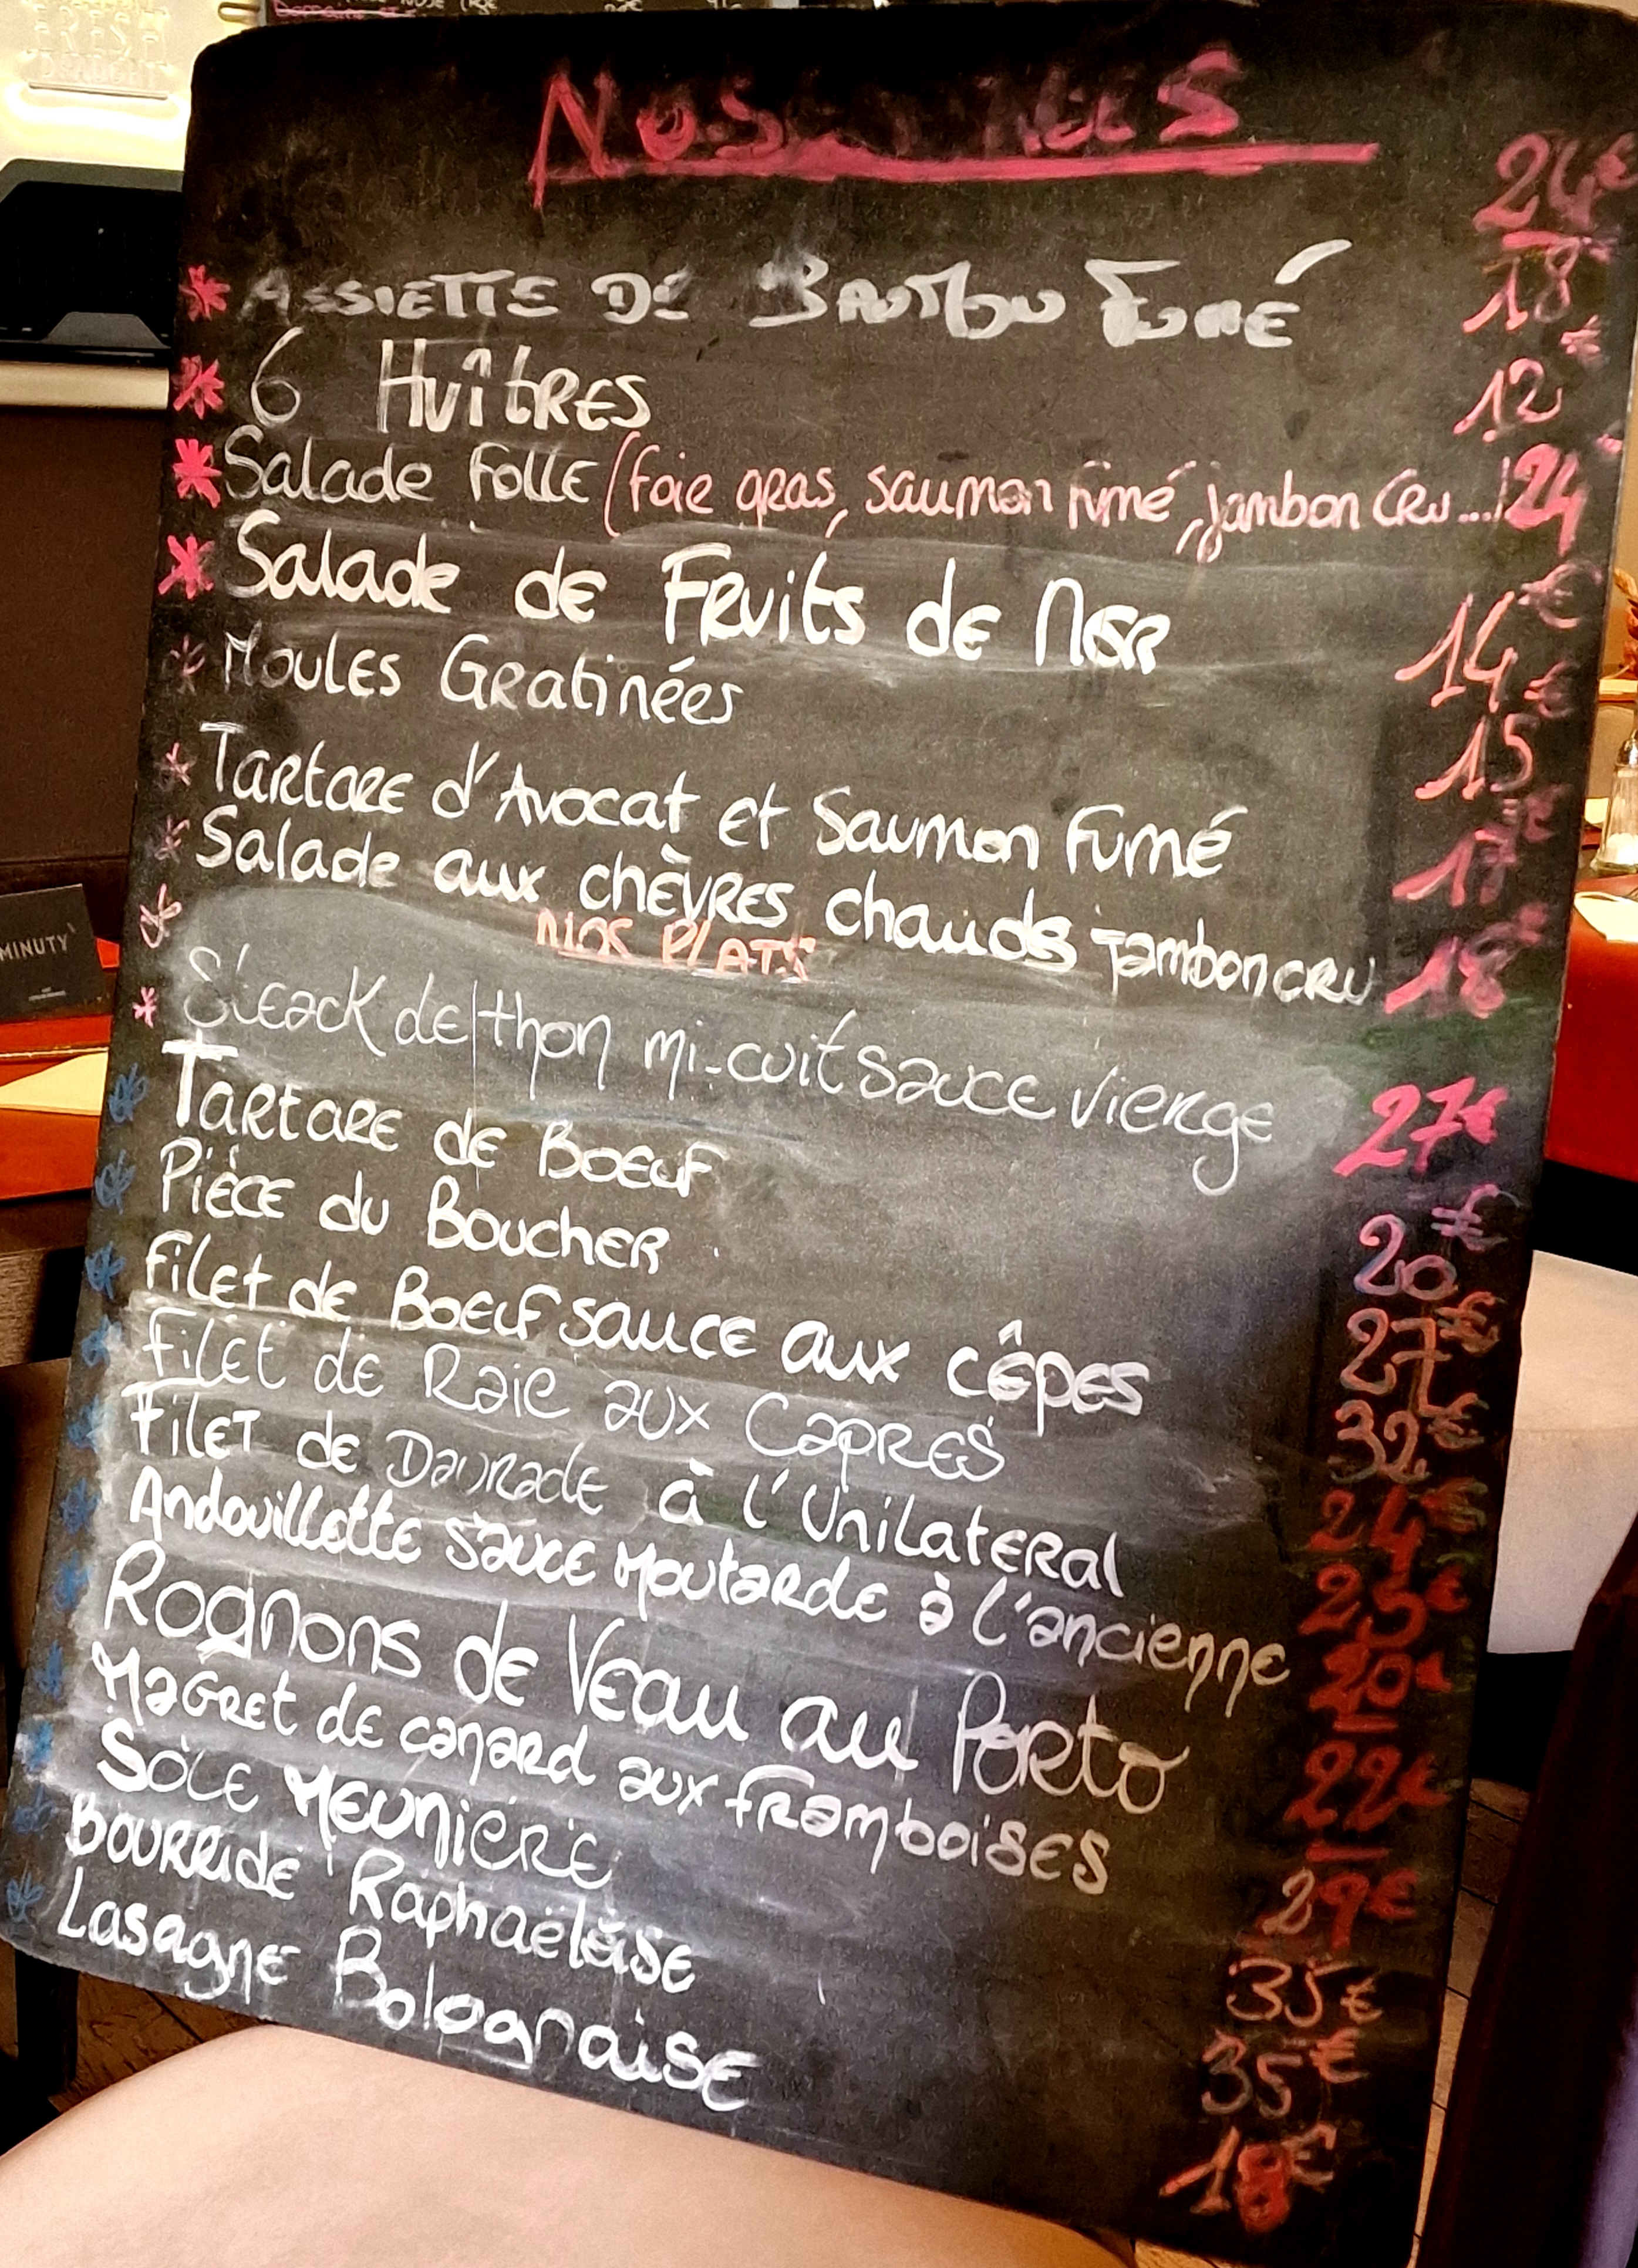 Nos
24€
* ASSIETTE DE SAUMON FUMÉ 18€
* 6 HUÎTRES 12€
* Salade FOLLE (foie gras, saumon fumé, jambon cru...) 24
* Salade de FRUITS de MER 14€
* MOULES GRATINÉES 15€
* TARTARE d'Avocat et Saumon Fumé 17€
* Salade aux CHÈVRES chauds jambon CRU 18€
NOS PLATS
* STEACK de thon mi-cuit SAUCE VIERGE 27€
* TARTARE de BOEUF 20€
* PIÈCE du BOUCHER 27€
* FILET de BOEUF SAUCE aux CÊPES 32€
* FILET de Raie aux CAPRES 24€
* FILET de Daurade à l'UNILATERAL 25€
* Andouillette SAUCE MOUTARDE à l'ancienne 20€
* Rognons de Veau au Porto 22€
* MAGRET de canard aux framboises 29€
* SOLE MEUNIÈRE 35€
* BOURRIDE Raphaëloise 35€
* Lasagne Bolognaise 18€
MINUTY